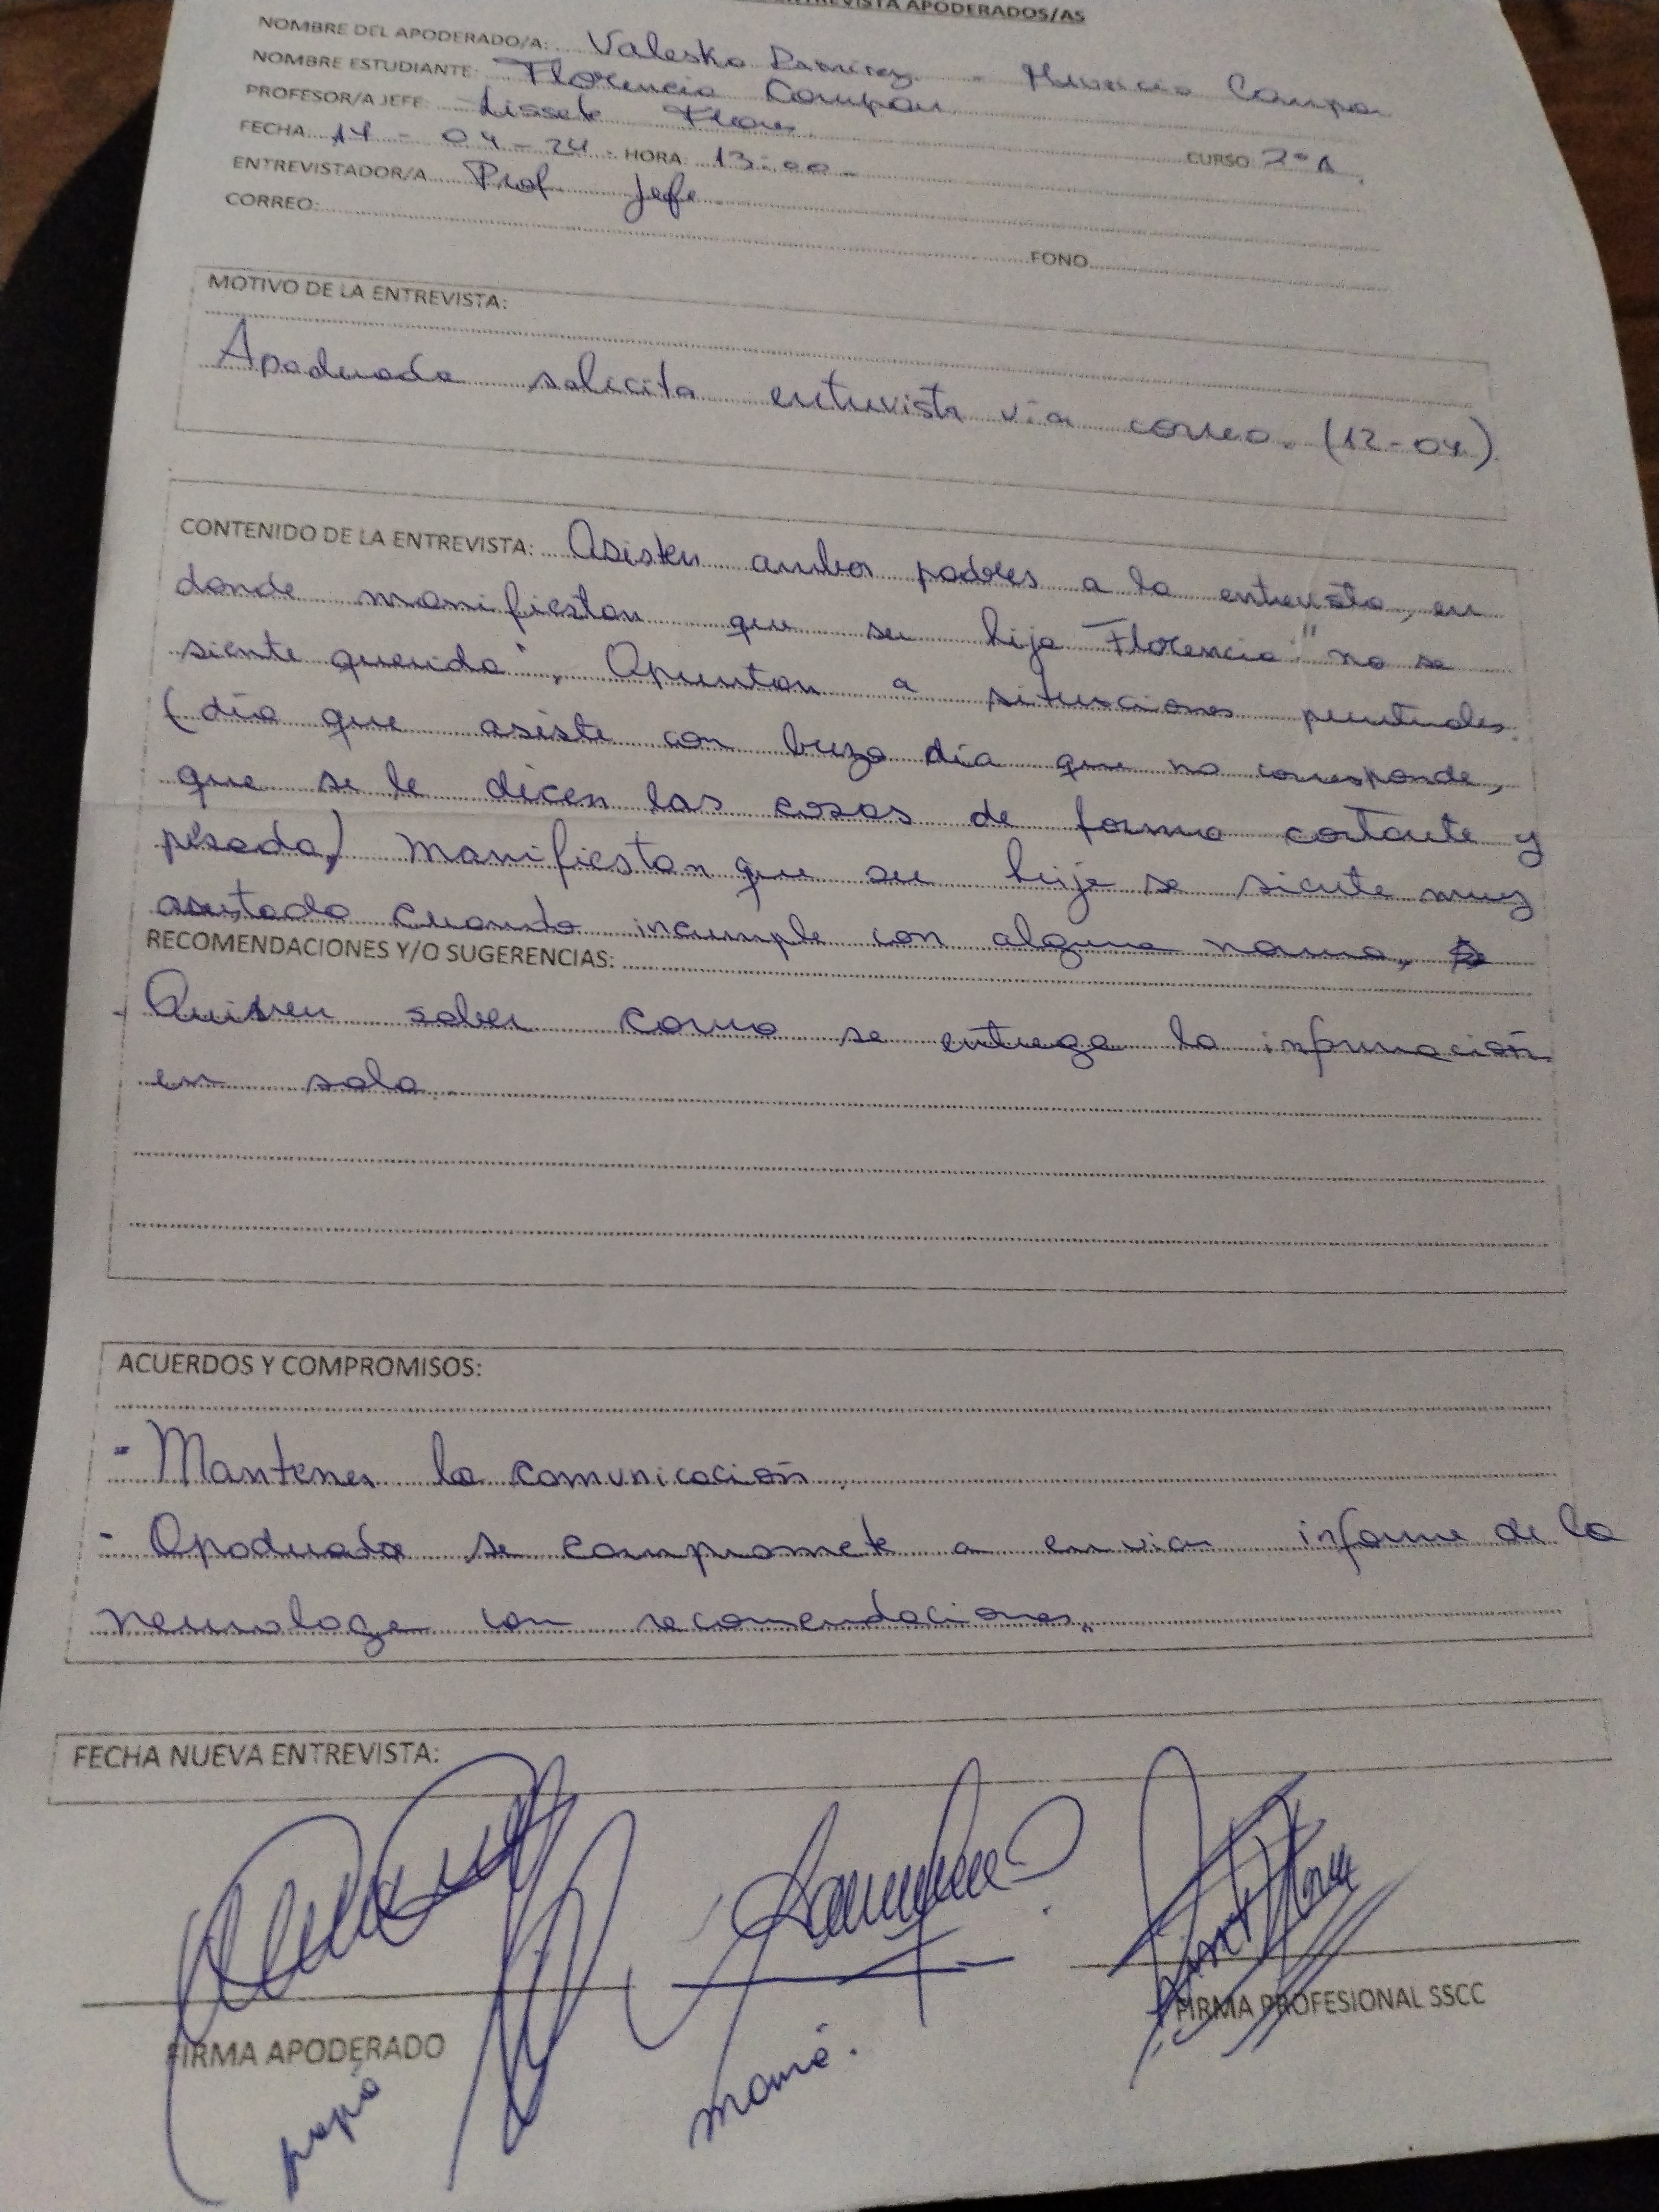 ENTREVISTA APODERADOS/AS
NOMBRE DEL APODERADO/A: Valeska Ramirez - Mauricio Campo
NOMBRE ESTUDIANTE: Florencia Campou
PROFESOR/A JEFE: Lissete Flores.
CURSO 2°A
FECHA 17-04-24. HORA: 13:00
ENTREVISTADOR/A Prof. Jefe.
CORREO: FONO
MOTIVO DE LA ENTREVISTA:
Apoderada solicita entrevista vía correo. (12-04)
CONTENIDO DE LA ENTREVISTA: Asisten ambos padres a la entrevista, en
donde manifiestan que su hija Florencia "no se
siente querida", Apuntan a situaciones puntuales.
(día que asiste con buzo día que no corresponde,
que se le dicen las cosas de forma cortante y
pesada,) manifiestan que su hija se siente muy
asustada cuando incumple con alguna norma.
RECOMENDACIONES Y/O SUGERENCIAS:
- Quieren saber como se entrega la información
en sala.
ACUERDOS Y COMPROMISOS:
- Mantener la comunicación
- Apoderada se compromete a enviar informe de la
neurologa con recomendaciones.
FECHA NUEVA ENTREVISTA:
FIRMA APODERADO
papá
mamá.
FIRMA PROFESIONAL SSCC